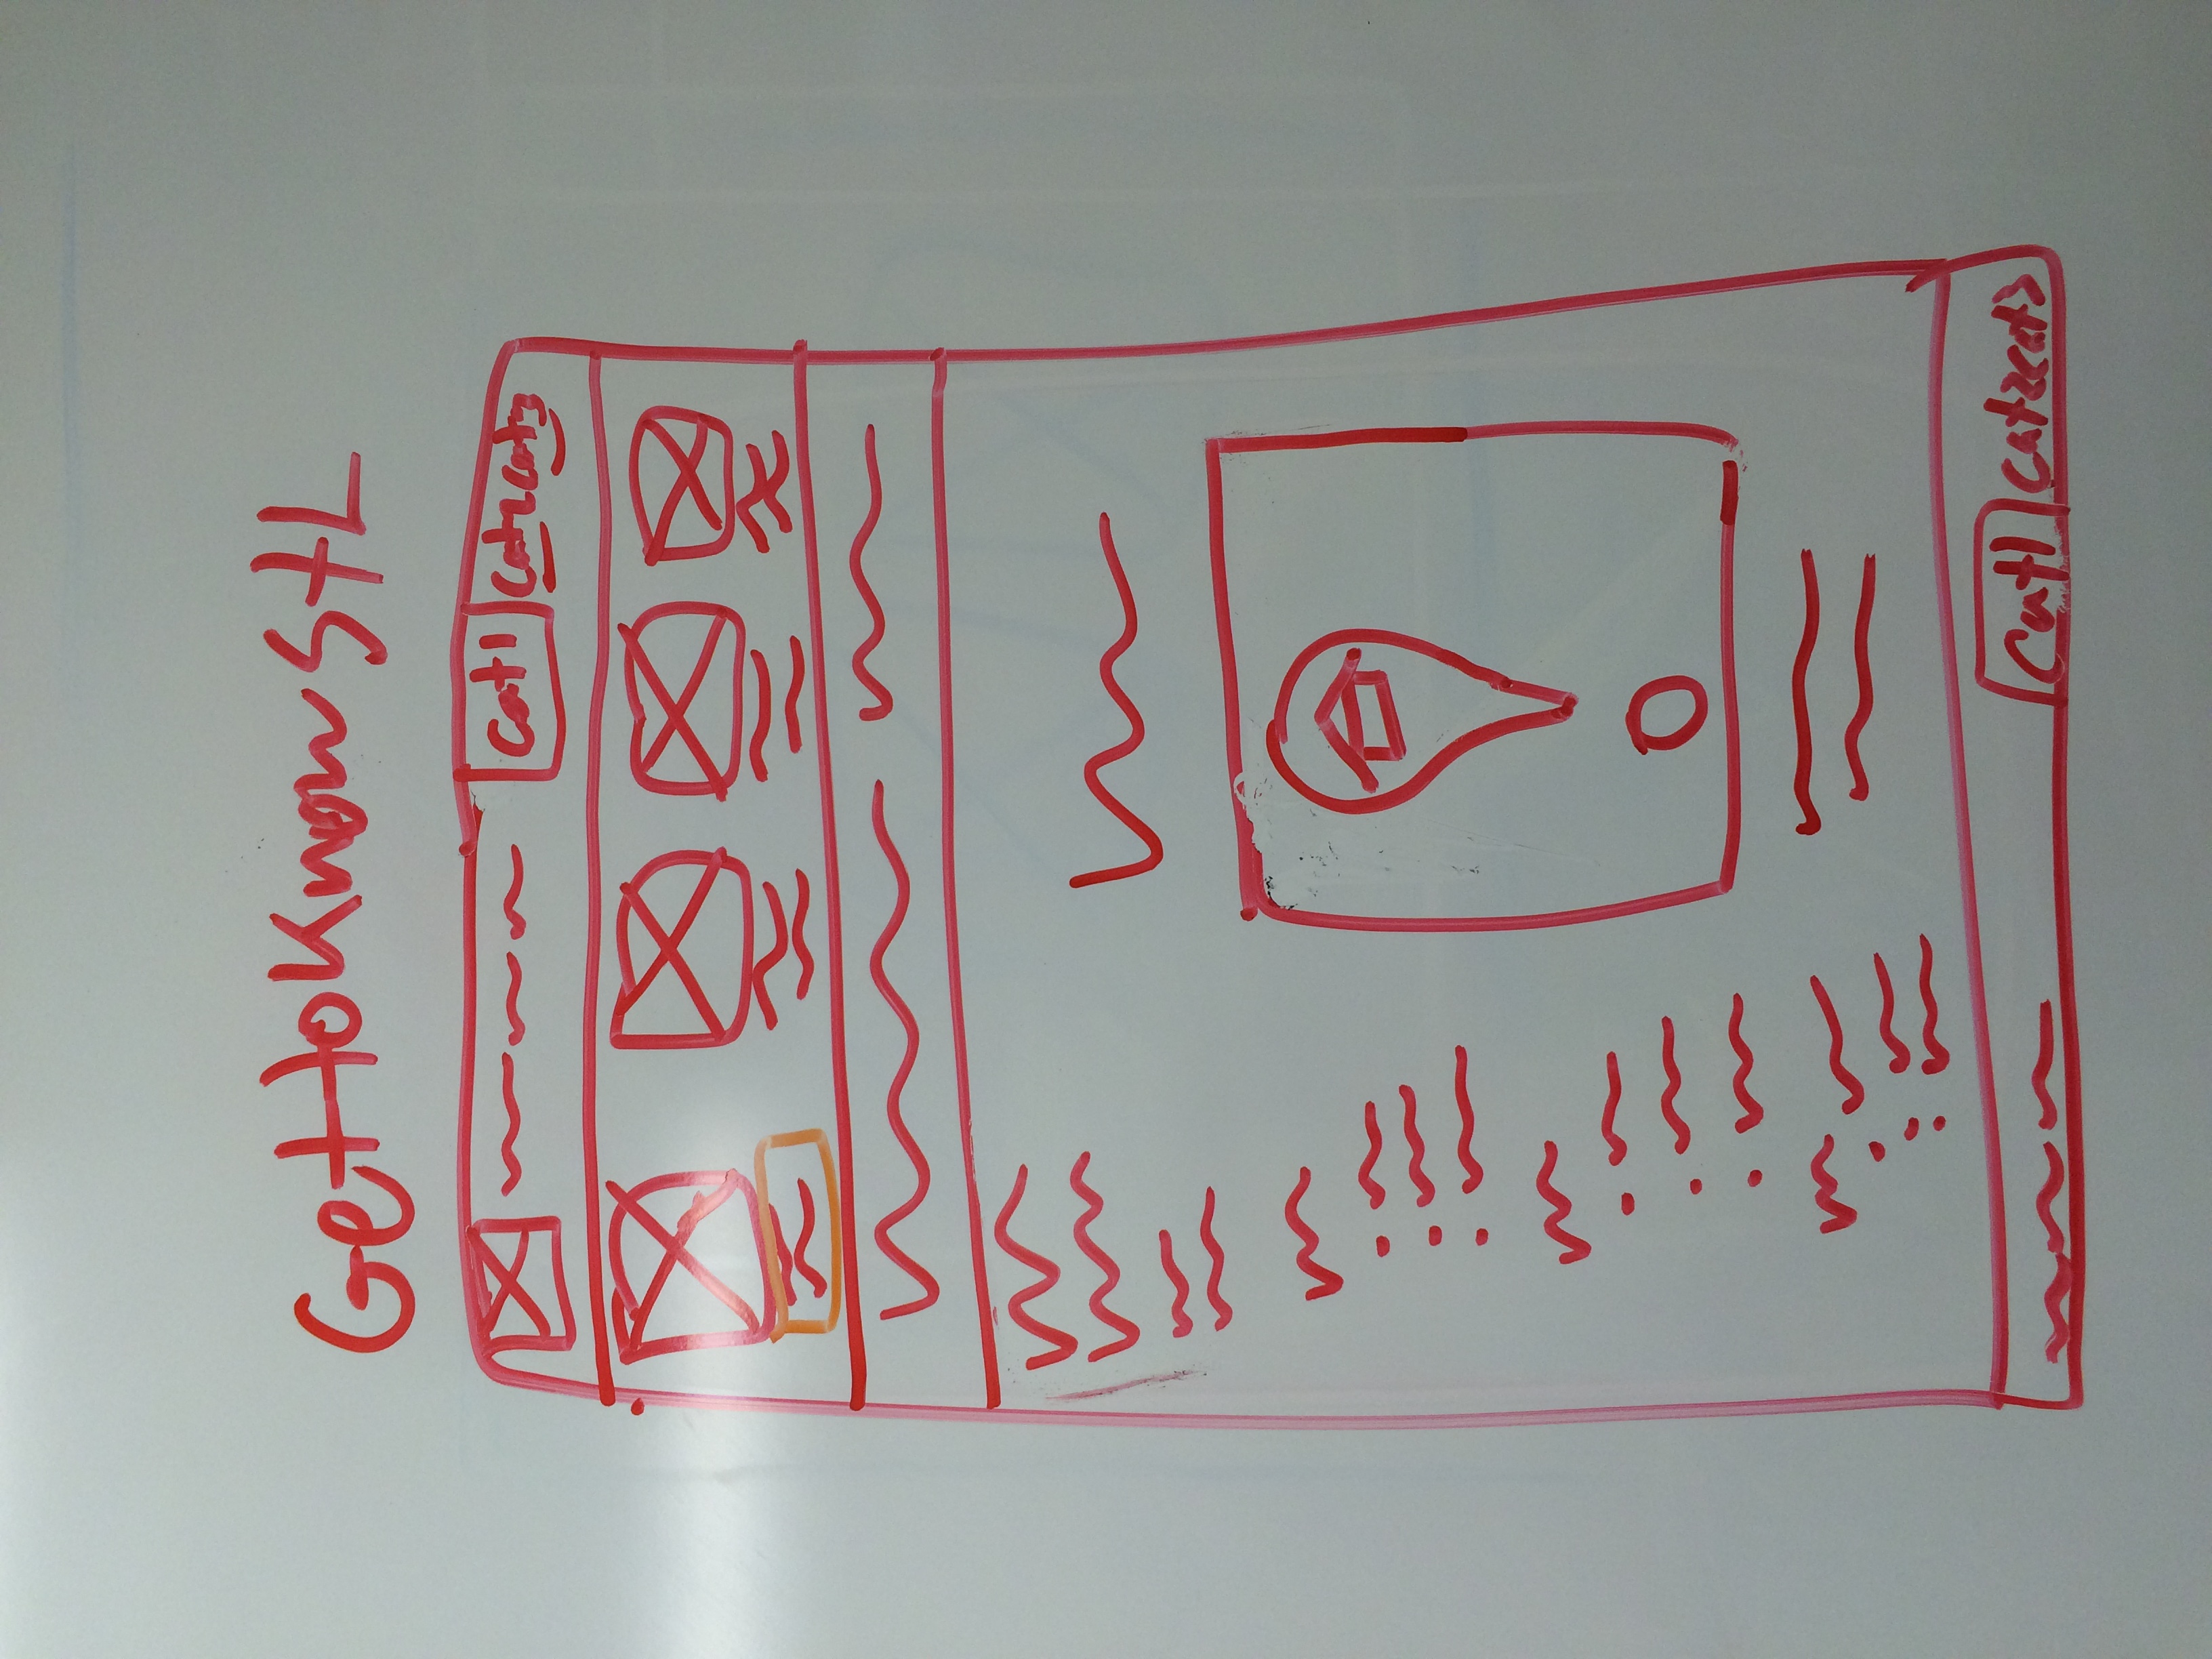 GettoKnow StL
Cat1 Cat2 Cat3
Cat1 Cat2 Cat3